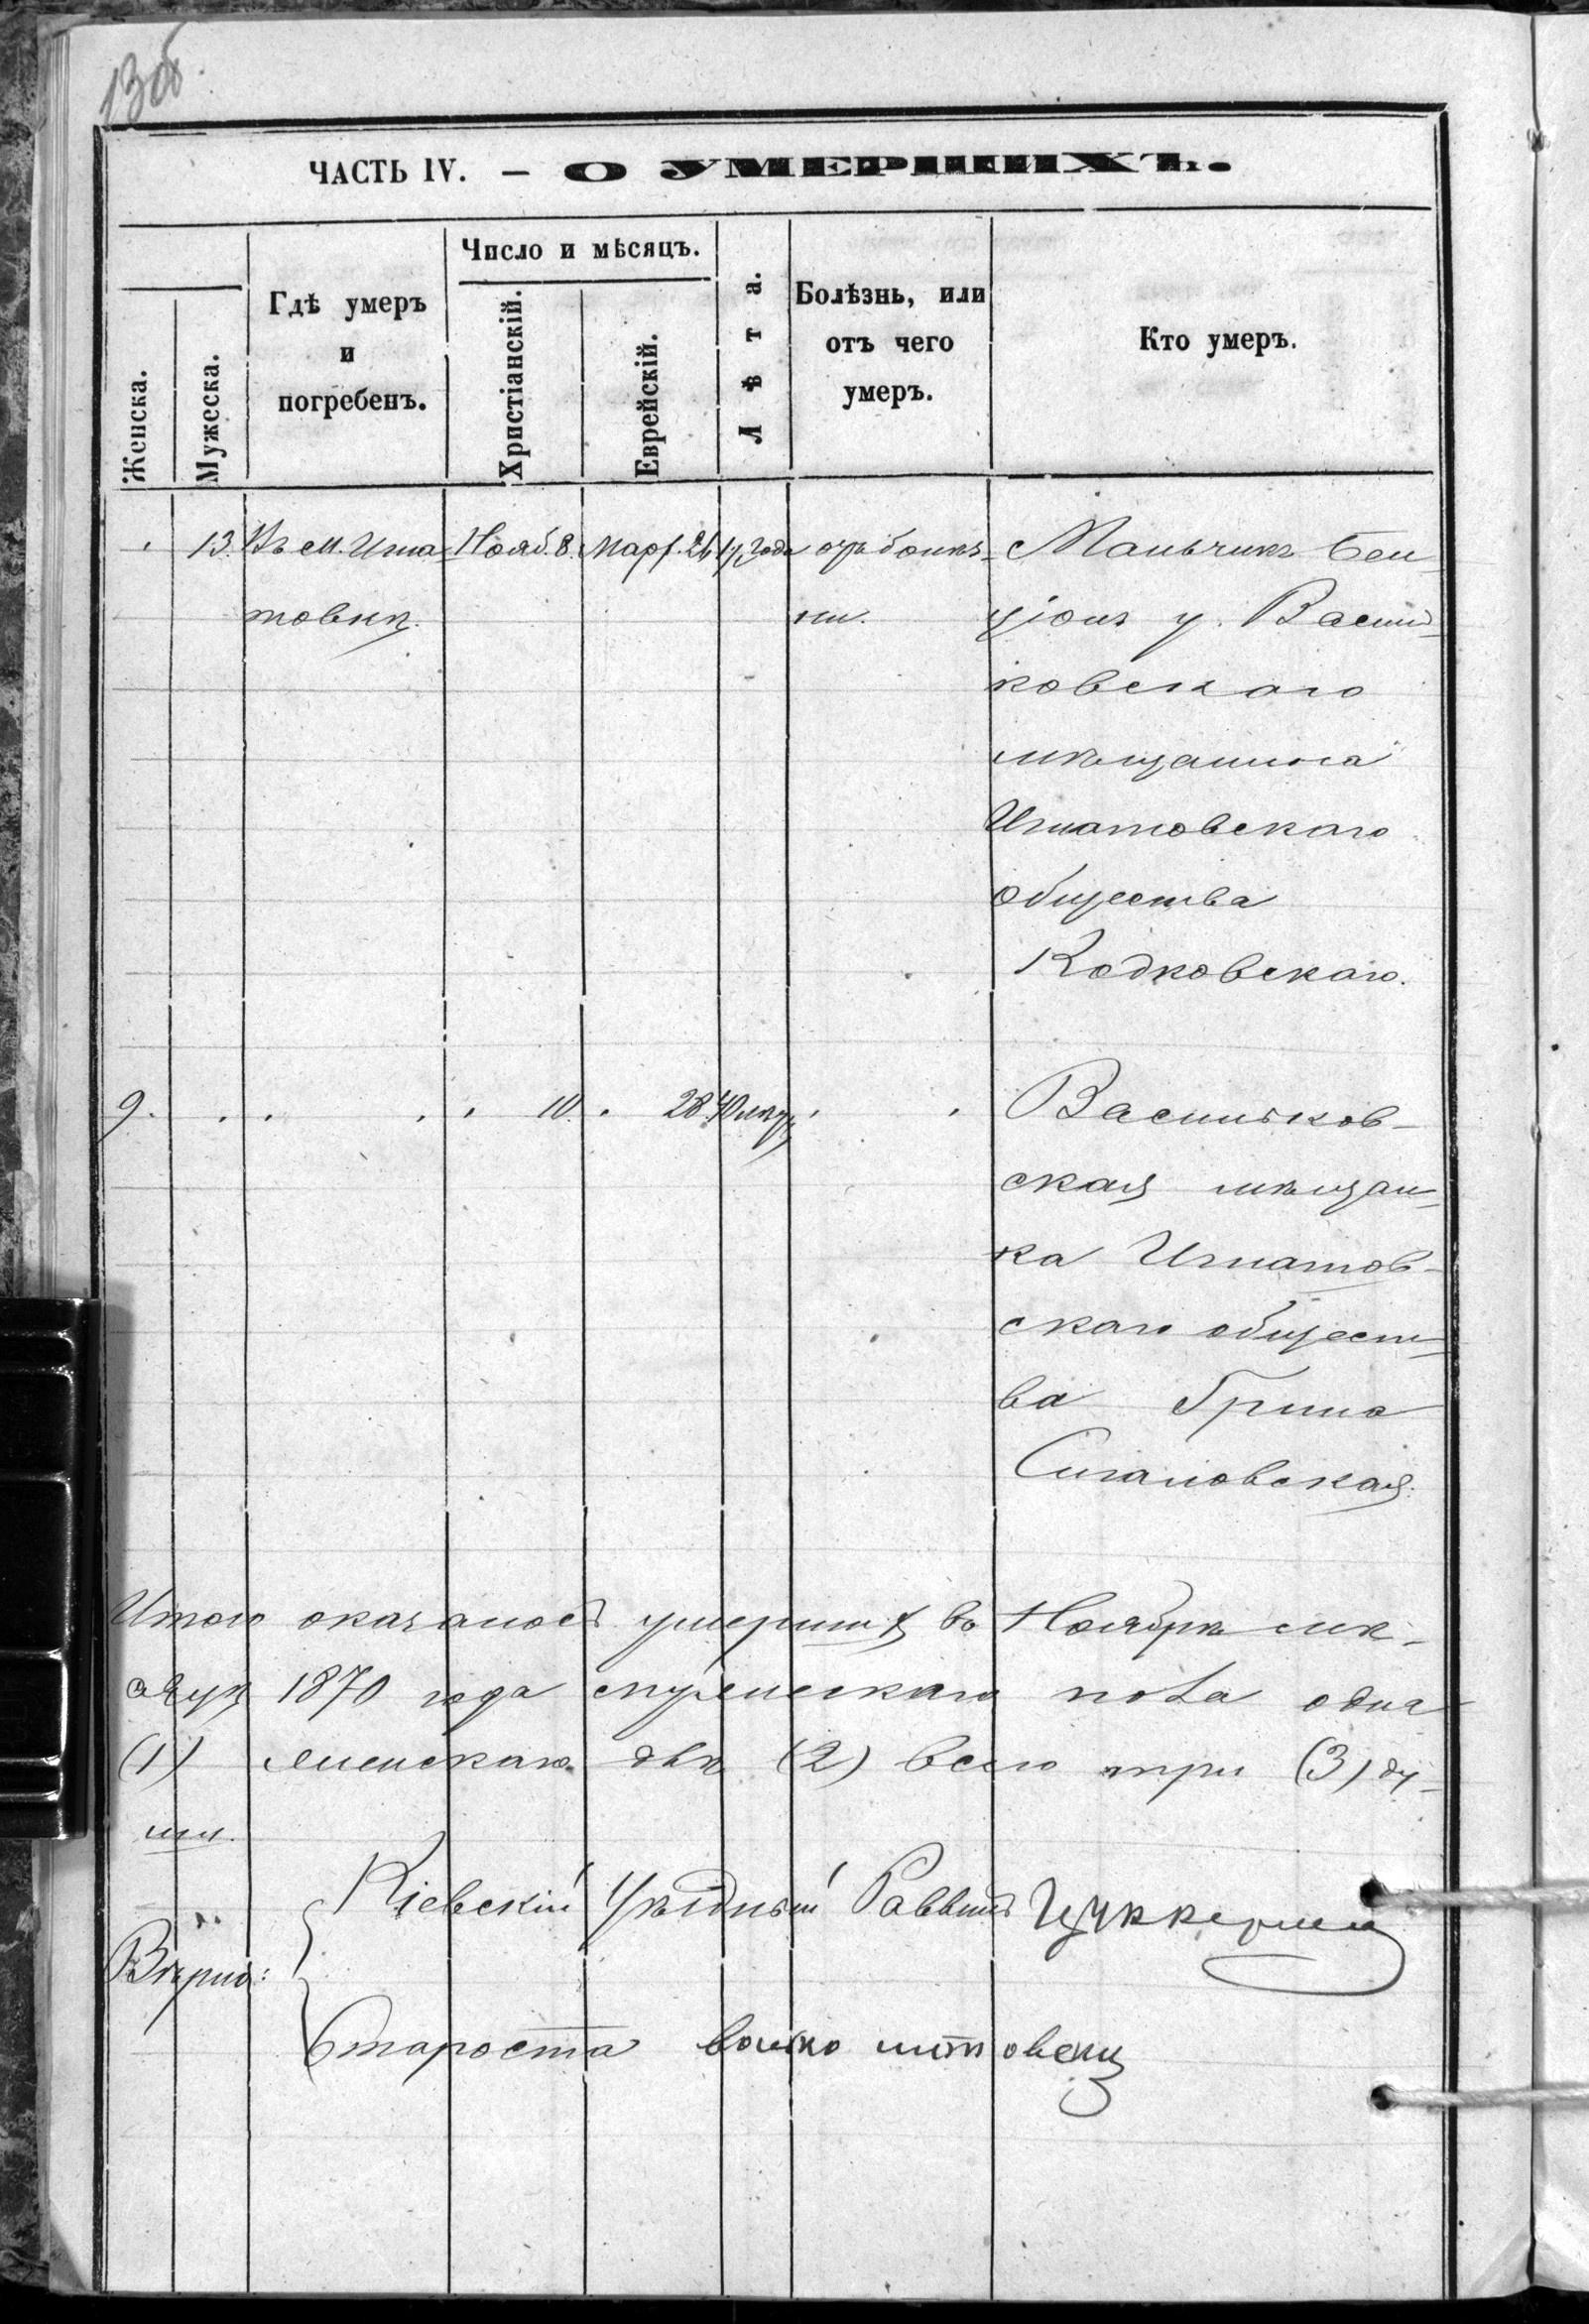 13об.
ЧАСТЬ IV. — О УМЕРШИХЪ.
Женска.
Мужеска.
Гдѣ умеръ
и
погребенъ.
Число и мѣсяцъ.
Христіанскій.
Еврейскій.
Лѣта.
Болѣзнь, или
отъ чего
умеръ.
Кто умеръ.
13. Въ м. Игна- Нояб. 8. года отъ болѣз- Мальчикъ Бен-
товкѣ. ни. ціонъ у Василь-
ковскаго
мѣщанина
Игнатовскаго
общества
Кодковскаго.
9. 10. 28. 40 лѣтъ Васильков-
ская мѣщан-
ка Игнатов-
скаго общест-
ва
Сигаловская.
Итого оказалось умершихъ въ Ноябрѣ мѣ-
сяцѣ 1870 года мужескаго пола одна
(1) женскаго двѣ (2) всего три (3) ду-
ши.
Кіевскій Уѣздный Раввинъ Цуккерман
Вѣрно:
Староста волько литовец